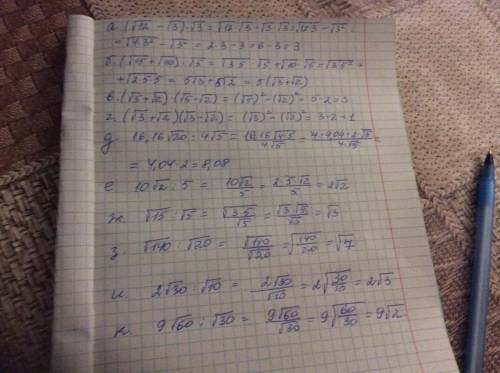 а. (√12 − √3)·√3 = √12·√3 − √3·√3 = √12·3 − √3² =
= √4·3² − √3² = 2·3 − 3 = 6 − 3 = 3
б. (√15 + √10)·√5 = √3·5·√5 + √10·√5 = √3·5² +
+ √2·5·5 = 5√3 + 5√2 = 5(√3 + √2)
в. (√5 + √2)(√5 − √2) = (√5)² − (√2)² = 5 − 2 = 3
г. (√3 + √2)(√3 − √2) = (√3)² − (√2)² = 3 − 2 = 1
д. 16,16√20 : 4√5 = 16,16√4·5 / 4√5 = 4·4,04·2√5 / 4√5 =
= 4,04·2 = 8,08
е. 10√2 : 5 = 10√2 / 5 = 2·5·√2 / 5 = 2√2
ж. √15 : √5 = √3·5 / √5 = √3·√5 / √5 = √3
з. √140 : √20 = √140 / √20 = √140/20 = √7
и. 2√30 : √10 = 2√30 / √10 = 2√30/10 = 2√3
к. 9√60 : √30 = 9√60 / √30 = 9√60/30 = 9√2